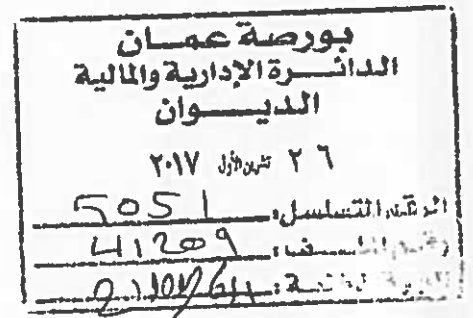 بورصة عمان
الدائرة الإدارية والمالية
الديوان
٢٦ تشرين الأول ٢٠١٧
الرقم المتسلسل: 5051
رقم الملف: 41209
الجهة المختصة: